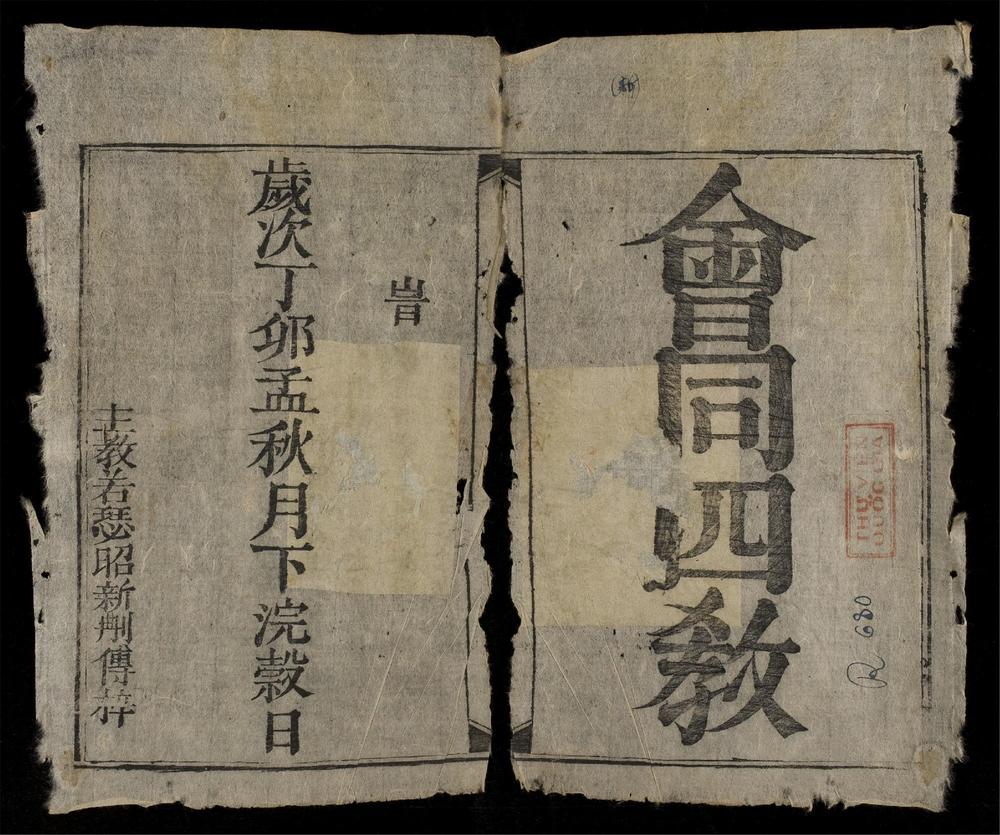 會同四教
(新)
THƯ VIỆN
QUỐC GIA
R 680
旹
歲次丁卯孟秋月下浣穀日
主教若瑟昭新刪傳梓